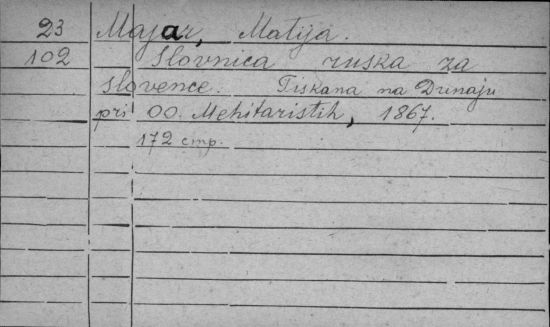 23 Majar, Matija.
102 Slovnica ruska za
slovence. Tiskana na Dunaju
pri OO. Mehitaristih, 1867.
172 стр.